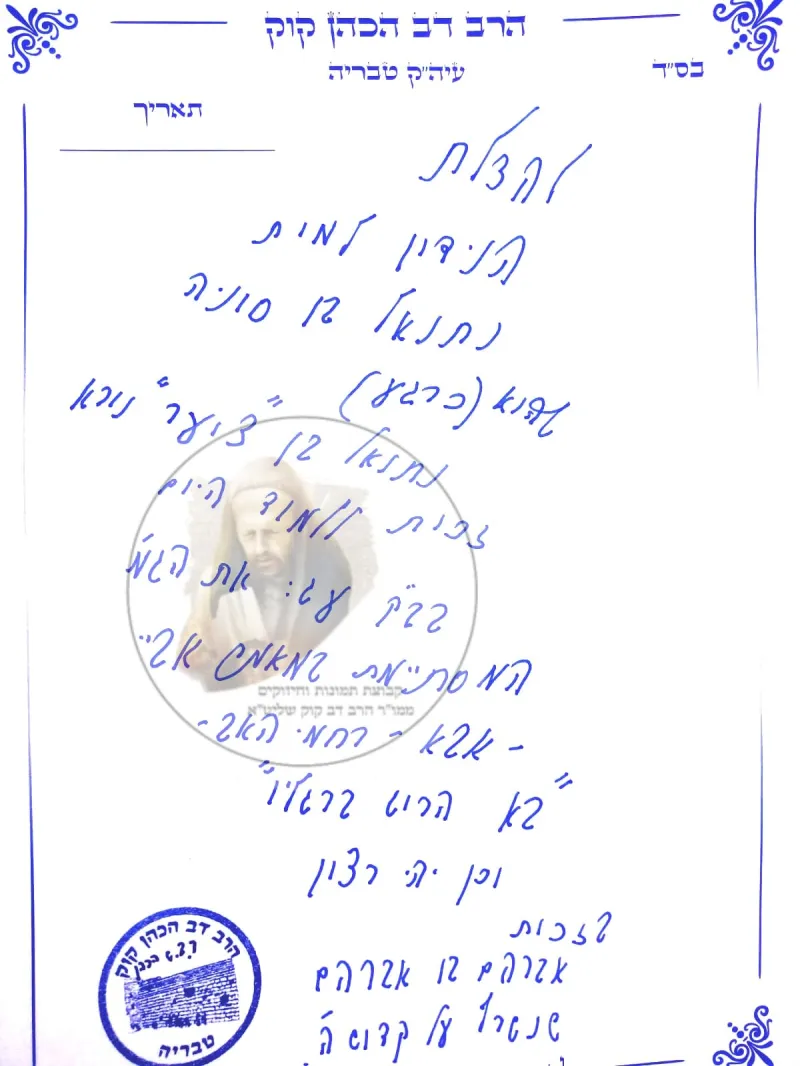 הרב דב הכהן קוק
עיה״ק טבריה
בס״ד
תאריך
להצלת
הנידון למית
נתנאל בן סוניה
שהוא (כרגע)
נתנאל בן "ציער" נורא
זכות ללמוד היום
בב"ק עג: את הגמ'
המסתיימת במאמר אביי
- אבא - רחמי האב -
"בא הרוט ברגליו"
וכן יהי רצון
קבוצת תמונות וחיזוקים
ממו״ר הרב דב קוק שליט״א
בזכות
אברהם בן אברהם
שנשרף על קדוש ה'
הרב דב הכהן קוק
טבריה